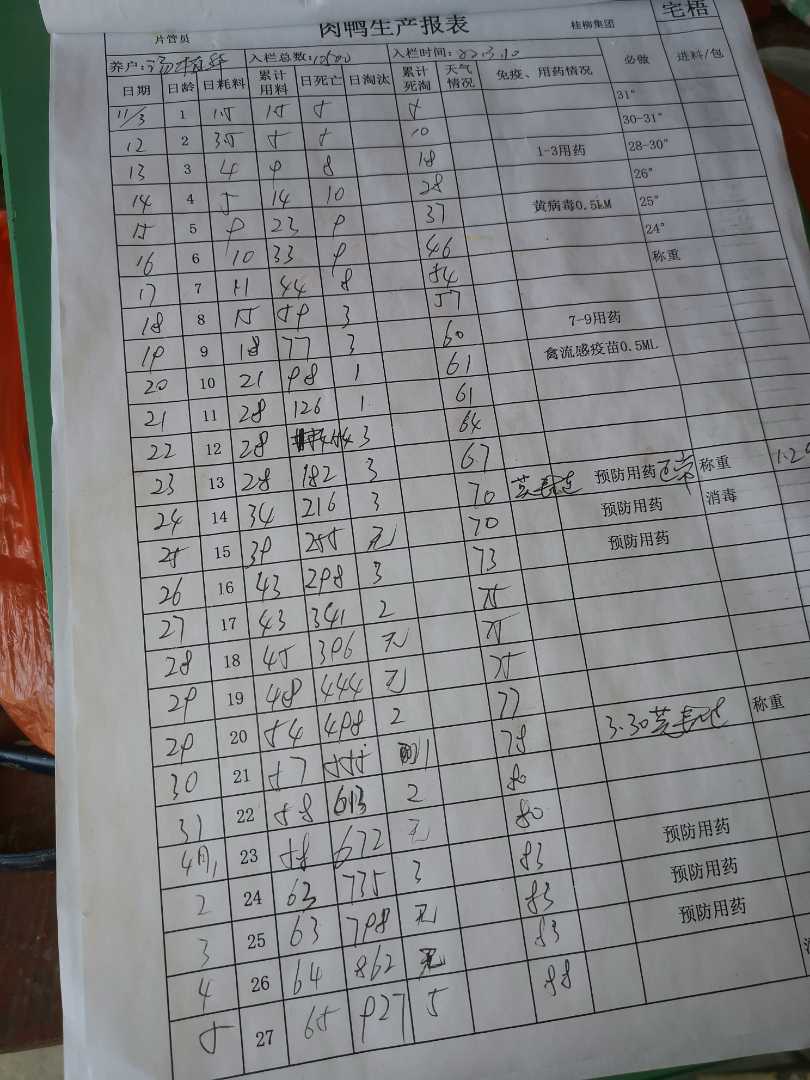 肉鸭生产报表
片管员 桂柳集团 宅梧
养户: 入栏总数:12500 入栏时间:22.3.10
日期 日龄 日耗料 累计用料 日死亡 日淘汰 累计死淘 天气情况 免疫、用药情况 必做 进料/包
11/3 1 15 15 5 5 31°
12 2 35 5 5 10 30-31°
13 3 4 9 8 18 1-3用药 28-30°
14 4 5 14 10 28 26°
15 5 9 23 9 37 黄病毒0.5ML 25°
16 6 10 33 9 46 24°
17 7 11 44 8 54 称重
18 8 15 59 3 57
19 9 18 77 3 60 7-9用药
20 10 21 98 1 61 禽流感疫苗0.5ML
21 11 28 126 1 61
22 12 28 154 3 64
23 13 28 182 3 67
24 14 34 216 3 70 预防用药 正常 称重
25 15 39 255 无 70 预防用药 消毒
26 16 43 298 3 73 预防用药
27 17 43 341 2 75
28 18 45 396 无 75
29 19 48 444 无 75
29 20 54 498 2 77
30 21 57 555 1 78 3.30 称重
31 22 58 613 2 80
4月1 23 58 672 无 80
2 24 63 735 3 83 预防用药
3 25 63 798 无 83 预防用药
4 26 64 862 无 83 预防用药
5 27 65 927 5 88